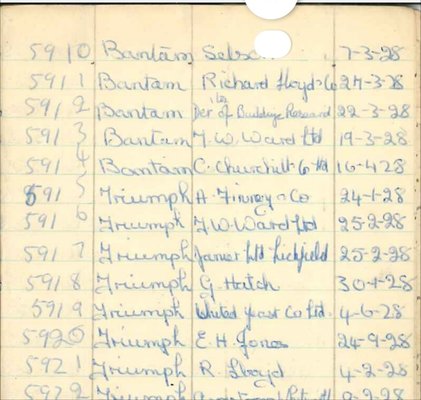 5910 Bantam Selson 7-3-28
5911 Bantam Richard Lloyd & Co 27-3-28
5912 Bantam Der of Building Research 22-3-28
5913 Bantam T. W. Ward Ltd 19-3-28
5914 Bantam C. Churchill & Co Ltd 16-4-28
5915 Triumph A. Finney & Co 24-1-28
5916 Triumph T W Ward Ltd 25-2-28
5917 Triumph Ltd Lichfield 25-2-28
5918 Triumph G. Hatch 30-1-28
5919 Triumph United Yeast Co Ltd. 4-6-28
5920 Triumph E. H. Jones 24-9-28
5921 Triumph R. Lloyd 4-2-28
5922 Triumph 9-2-28